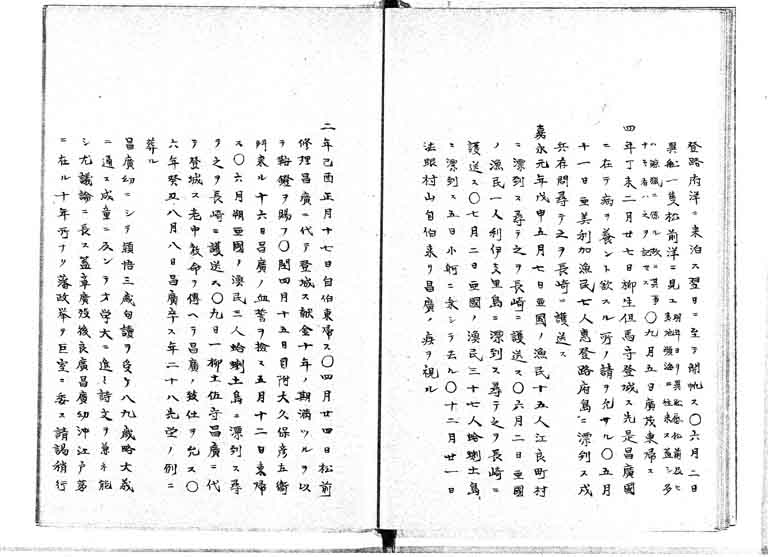 登路府洋ニ来泊ス翌日ニ至テ開帆ス〇六月二日
異船一隻松前洋ニ見ユ
〇九月五日廣茂東帰ス
四年丁未二月廿七日柳生但馬守登城ス先是昌廣國
ニ在テ病ヲ養ント欲スル所ノ請ヲ允サル〇五月
十一日亜美利加漁民七人恵登路府島ニ漂到ス戍
兵存問尋テ之ヲ長崎ニ護送ス
嘉永元年戊申五月七日亜國ノ漁民十五人江良町村
ニ漂到ス尋テ之ヲ長崎ニ護送ス〇六月二日亜國
ノ漁民一人利伊支里島ニ漂到ス尋テ之ヲ長崎ニ
護送ス〇七月二日亜國ノ漁民三十七人蛤蜊土島
ニ漂到ス五日小舸ニ乗シテ去ル〇十二月廿一日
法眼村山自伯来リ昌廣ノ疾ヲ視ル
二年己酉正月十七日自伯東帰ス〇四月廿四日松前
修理昌廣ニ代テ登城ス献金十年ノ期満ツルヲ以
テ鞍鐙ヲ賜フ〇閏四月十五日目附大久保彦左衛
門来ル十六日昌廣ノ血誓ヲ検ス五月十二日東帰
ス〇六月朔亜國ノ漁民三人蛤蜊土島ニ漂到ス尋
テ之ヲ長崎ニ護送ス〇九日一柳土佐守昌廣ニ代
テ登城ス老中教命ヲ傳ヘテ昌廣ノ致仕ヲ允ス〇
六年癸丑八月八日昌廣卒ス年二十八先塋ノ例ニ
葬ル
昌廣幼ニシテ穎悟三歳句讀ヲ受ケ八九歳略大義
ニ通ス成童ニ及ンテ才学大ニ進ミ詩文ヲ兼ネ能
シ尤議論ニ長ス蓋章廣歿後良廣昌廣幼沖江戸藩
ニ在ル十年所ナリ藩政挙テ巨室ニ委ス請謁稍行